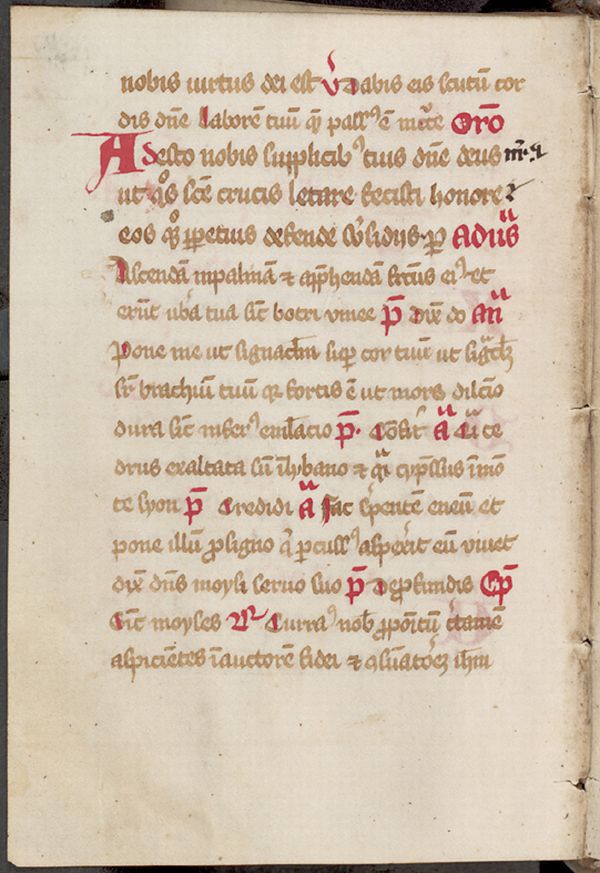 nobis uirtus dei est V̓ Dabis eis scutū cor
dis dn̄e Laborē tuū qͥ pass᾿ ē mo͛te Orō
Adesto nobis supplicib᾿ tuis dn̄e deus
ut qͦs scē crucis letare fecisti honore
eos qͦꝫ ꝑpetuis defende s͛bsidijs ꝑ Ad uͣs
Ascendā in palmā ⁊ app̄hendā fctus ei᾿ et
erūt ub͛a tua sīc botri uinee p̄ Dixͭ do añ
Pone me ut signaclm̄ suꝑ cor tuū ut sigͣclꝫ
sr̄ brachiū tuū qꝛ fortis ē ut mors dilc̄io
dura sīc infer᾿ eml̄acio p̄ Confit᾿ aᷓ Qͣi ce
drus exaltata sū ī lybano ⁊ qͣi cyp̄ssus ī mō
te syon p̄ Credidi aᷓ Fac s͛pentē eneū et
pone illū ꝓ signo qͥ ꝑcuss᾿ aspex͛it eū uiuet
dixͭ dn̄s moysi seruo suo p̄ De ꝓfundis Cp̄
Sīc moyses R͛ Curra᾿ nob̄ ꝓpoītū c͛tamē
aspiciētes ī auctorē fidei ⁊ ꝯsūatoꝛē ih̄m